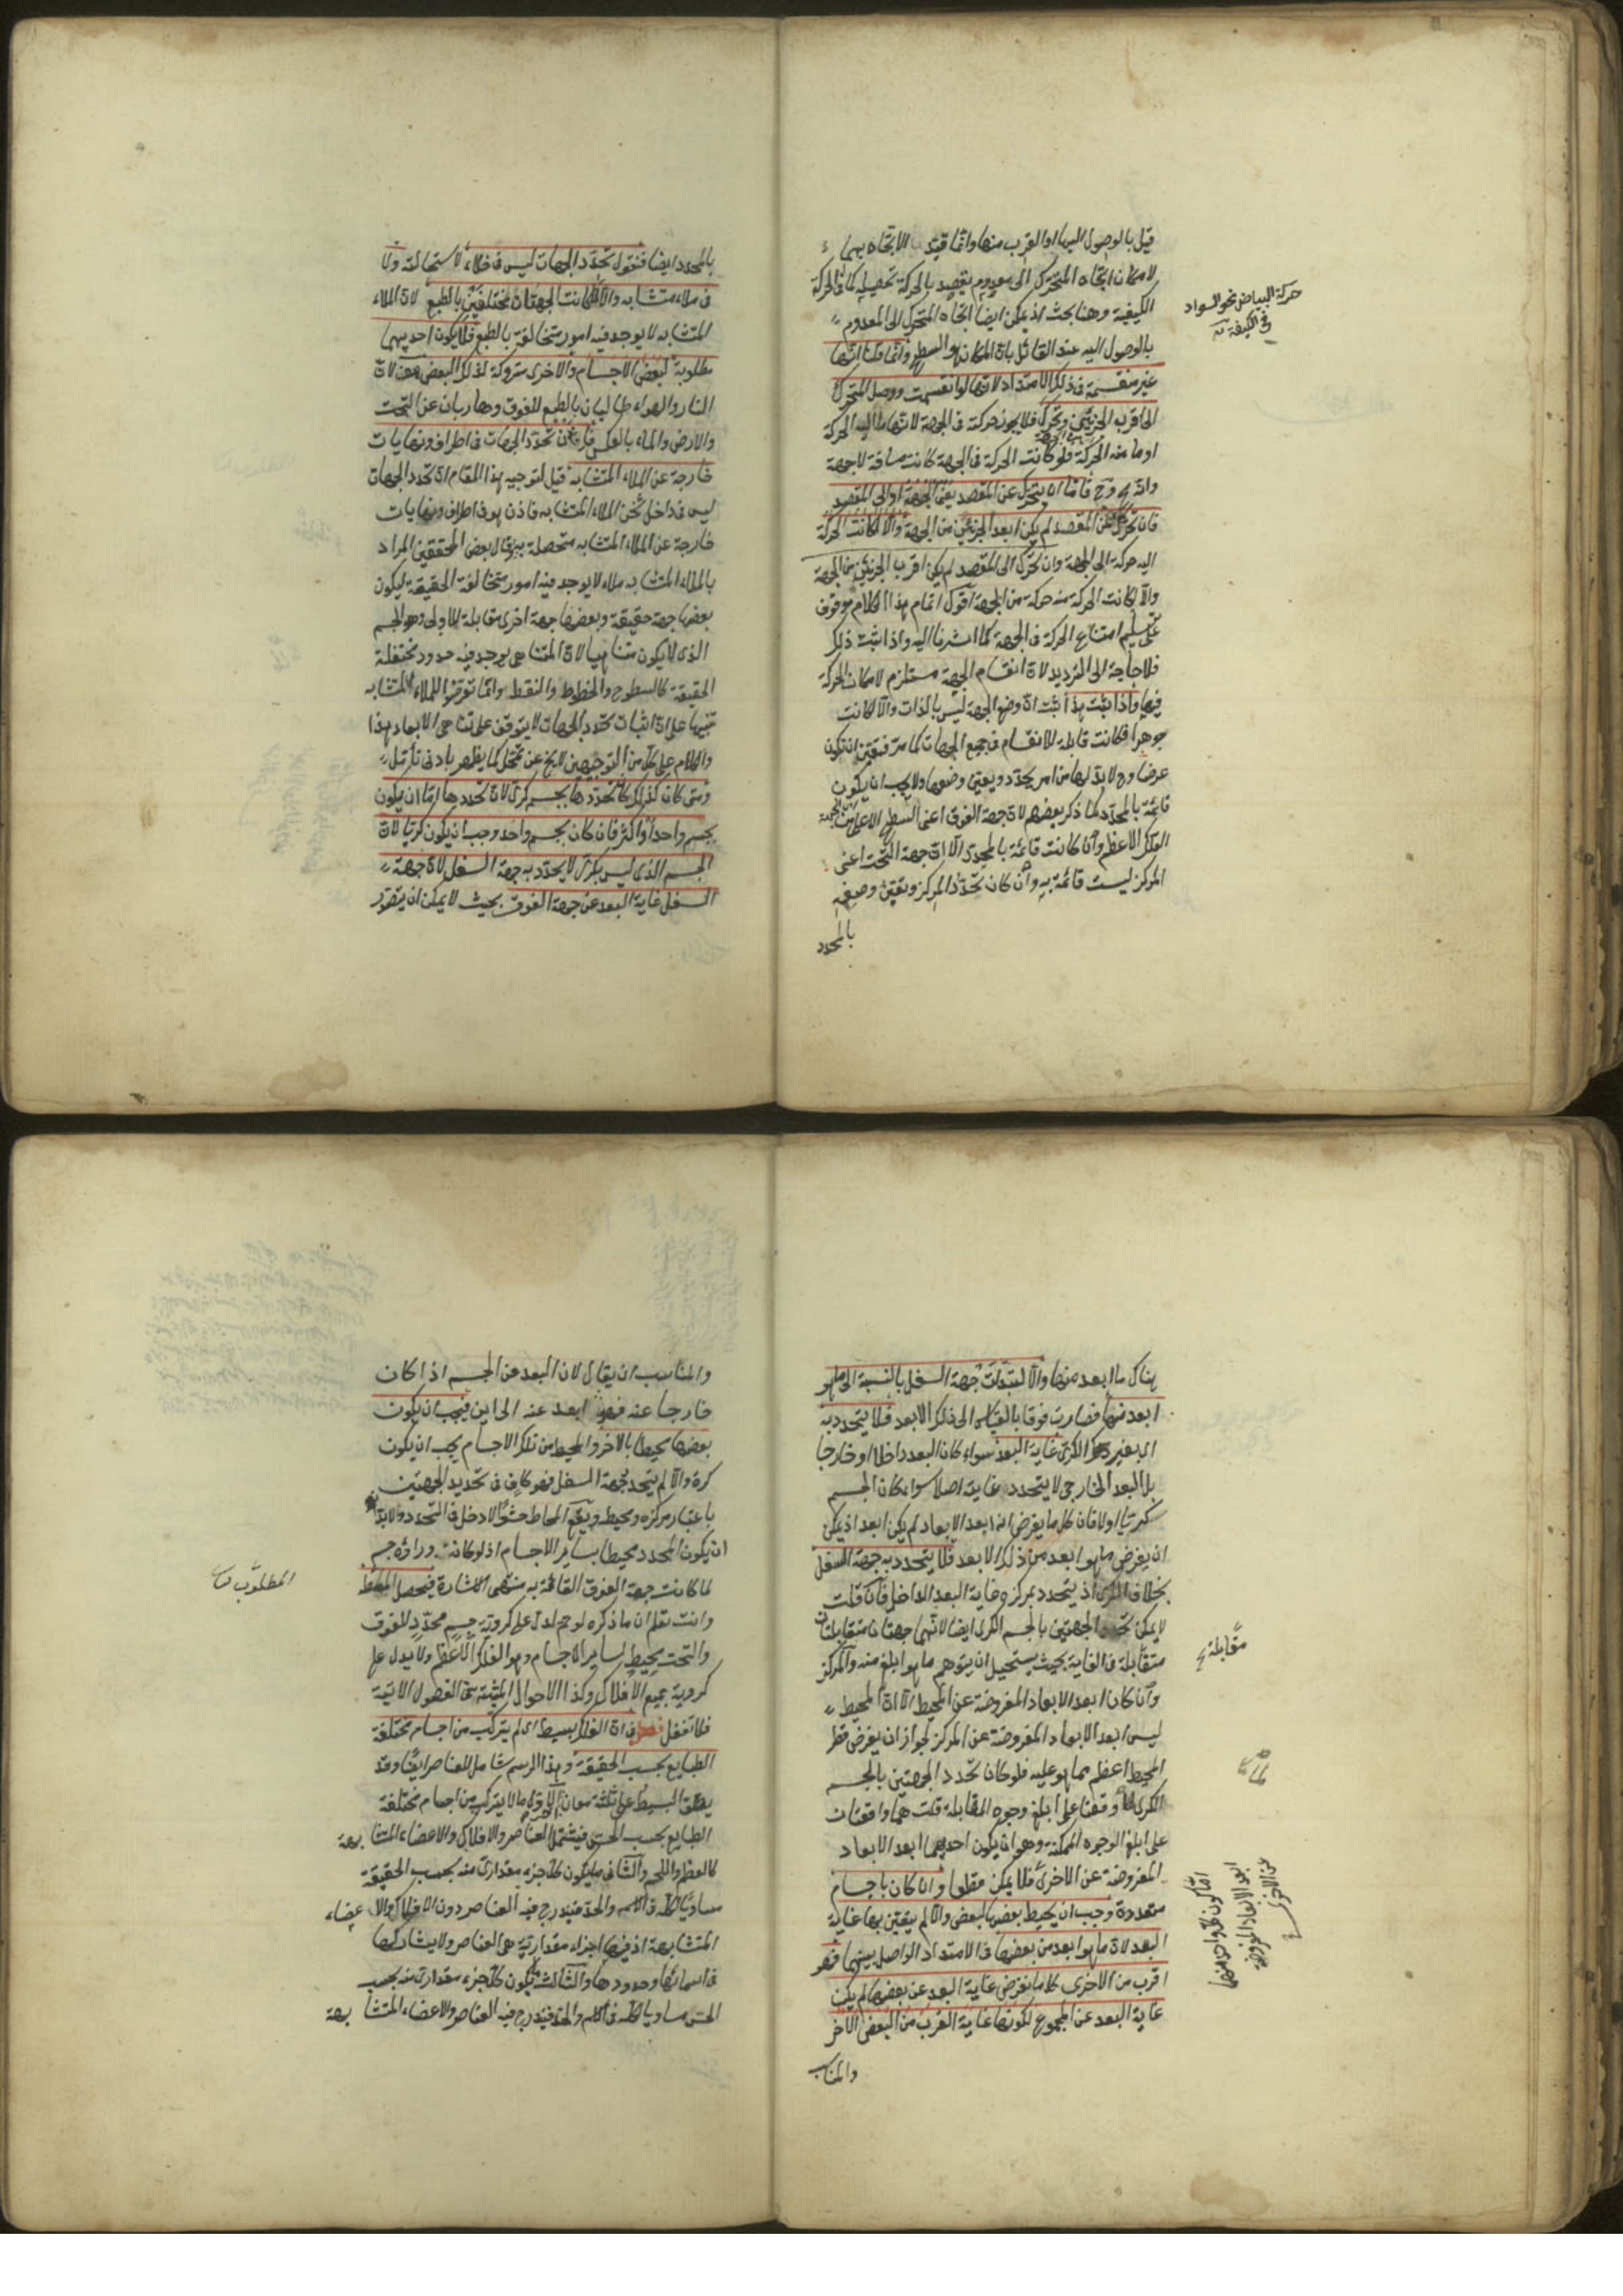 قيل بالوصول اليها او القرب منها وانما قيد الاتجاه بهما
لامكان اتجاه المتحرك الى معدوم يقصد بالحركة تحصيله كما في الحركة
الكيفية وهنا بحث اذ يمكن ايضا اتجاه المتحرك الى المعدوم
بالوصول اليه عند القائل بان المكان هو السطح وانما قلنا انها
غير منقسمة في ذلك الامتداد لانها لو انقسمت ووصل المتحرك
الى اقرب الجزئين وتحرك فلا يجوز حركة في الجهة لانها ما اليه الحركة
او ما منه الحركة فلو كانت الحركة في الجهة كانت مسافة لا جهة
وانه مح وح فاما ان يتحرك عن المقصد يعني الجهة او الى المقصد
فان تحرك عن المقصد لم يكن ابعد الجزئين من الجهة والا لكانت الحركة
اليه حركة الى الجهة وان تحرك الى المقصد لم يكن اقرب الجزئين من الجهة
والا لكانت الحركة منه حركة من الجهة اقول اتمام هذا الكلام موقوف
على تسليم امتناع الحركة في الجهة كما اشرنا اليه واذا ثبت ذلك
فلا حاجة الى الترديد لان انقسام الجهة مستلزم لامكان الحركة
فيها واذا ثبت هذا ثبت ان وضع الجهة ليس بالذات والا لكانت
جوهرا فكانت قابلة للانقسام في جميع الجهات كما مر فتعين ان تكون
عرضا وح لا بد لها من امر يحدد ويعين وضعها ولا يجب ان يكون
قائمة بالمحدد كما ذكر بعضهم لان جهة الفوق اعني السطح الاعلى من
الفلك الاعظم وان كانت قائمة بالمحدد الا ان جهة التحت اعني
المركز ليست قائمة به وان كان تحدد المركز وتعين وضعه
بالمحدد
حركة البياض نحو السواد
في الكيفية
بالمحدد ايضا فنقول تحدد الجهات ليس في خلاء لاستحالته ولا
في ملاء متشابه والا لما كانت الجهتان مختلفتين بالطبع لان الملاء
المتشابه لا يوجد فيه امور متخالفة بالطبع فلا يكون احديهما
مطلوبة لبعض الاجسام والاخرى متروكة لذلك البعض لان
النار والهواء طالبان بالطبع للفوق وهاربان عن التحت
والارض والماء بالعكس فاذن تحدد الجهات في اطراف ونهايات
خارجة عن الملاء المتشابه قيل لتوجيه هذا المقام ان تحدد الجهات
ليس في داخل ثخن الملاء المتشابه فاذن هو في اطراف ونهايات
خارجة عن الملاء المتشابه متحصلة به وقال بعض المحققين المراد
بالملاء المتشابه ملاء لا يوجد فيه امور متخالفة الحقيقة ليكون
بعضها جهة حقيقة وبعضها جهة اخرى مقابلة للاولى وهو الجسم
الذي لا يكون متناهيا لان المتناهي يوجد فيه حدود مختلفة
الحقيقة كالسطوح والخطوط والنقط وانما تعرضوا للملاء المتشابه
تنبيها على ان اثبات تحدد الجهات لا يتوقف على تناهي الابعاد هذا
والكلام على كل من التوجيهين لا يخ عن تمحل كما يظهر بادنى تأمل
ومتى كان كذلك كان تحددها بجسم كري لان تحددها اما ان يكون
بجسم واحد او اكثر فان كان بجسم واحد وجب ان يكون كريا لان
الجسم الذي ليس بكري لا يحدد به جهة السفل لان جهة
السفل غاية البعد عن جهة الفوق بحيث لا يمكن ان يتصور
هناك ما ابعد منها والا لتبدلت جهة السفل بالنسبة الى ما هو
ابعد منها فصارت فوقا بالقياس الى ذلك الابعد فلا يتحدد به
اي بغير الكري غاية البعد سواء كان البعد داخلا او خارجا
بل البعد الخارجي لا يتحدد غايته اصلا سواء كان الجسم
كريا او لا فان كل ما يفرض انه ابعد الابعاد لم يكن ابعد اذ يمكن
ان يفرض ما هو ابعد من ذلك الابعد فلا يتحدد به جهة السفل
بخلاف الكري اذ يتحدد بمركزه غاية البعد الداخل فان قلت
لا يمكن تحدد الجهتين بالجسم الكري ايضا لانهما جهتان متقابلتان
متقابلة في الغاية بحيث يستحيل ان يتوهم ما هو ابلغ منه والمركز
وان كان ابعد الابعاد المفروضة عن المحيط الا ان المحيط
ليس ابعد الابعاد المفروضة عن المركز لجواز ان يفرض قطر
المحيط اعظم مما هو عليه فلو كان تحدد الجهتين بالجسم
الكري لما وقعتا على ابلغ وجوه المقابلة قلت هما واقعتان
على ابلغ الوجوه الممكنة وهو ان يكون احديهما ابعد الابعاد
المفروضة عن الاخرى فلا يمكن مطلقا وان كان باجسام
متعددة وجب ان يحيط بعضها بالبعض والا لم يتعين بها غاية
البعد لان ما هو ابعد من بعضها في الامتداد الواصل بينهما فهو
اقرب من الاخرى كل ما يفرض غاية البعد عن بعضها لم يكن
غاية البعد عن المجموع لكونها غاية القرب من البعض الاخر
والمناسب
مقابلة
اما كون كل واحد منهما
ابعد الابعاد المفروضة
عن الاخرى
والمناسب ان يقال لان البعد عن الجسم اذا كان
خارجا عنه فهو ابعد عنه الى اين فيجب ان يكون
بعضها محيطا بالاخر والمحيط من تلك الاجسام يجب ان يكون
كرة والا لم يتحدد جهة السفل فهو كاف في تحديد الجهتين
باعتبار مركزه ومحيطه ويقع المحاط حشوا لا دخل في التحدد ولا بد
ان يكون المحدد محيطا بسائر الاجسام اذ لو كان وراءه جسم
لما كانت جهة الفوق القائمة به منتهى الاشارة فيحصل
وانت تعلم ان ما ذكره لو تم لدل على كروية جسم محدد للفوق
والتحت محيط لسائر الاجسام وهو الفلك الاعظم ولا يدل على
كروية جميع الافلاك وكذا الاحوال المثبتة في الفصول الآتية
فلا تغفل فصل في ان الفلك بسيط اي لم يتركب من اجسام مختلفة
الطبايع بحسب الحقيقة وهذا الرسم شامل للعناصر ايضا وقد
يطلق البسيط على ثلثة معان الاول ما لا يتركب من اجسام مختلفة
الطبايع بحسب الحس فيشتمل العناصر والافلاك والاعضاء المتشابهة
كالعظم واللحم والثاني ما يكون كل جزء مقداري منه بحسب الحقيقة
مساويا لكله في الاسم والحد فيندرج فيه العناصر دون الافلاك والاعضاء
المتشابهة اذ فيها اجزاء مقدارية هي العناصر ولا يشاركها
في اسمائها وحدودها والثالث ما يكون كل جزء مقداري منه بحسب
الحس مساويا لكله في الاسم والحد فيندرج فيه العناصر والاعضاء المتشابهة
المطلوب